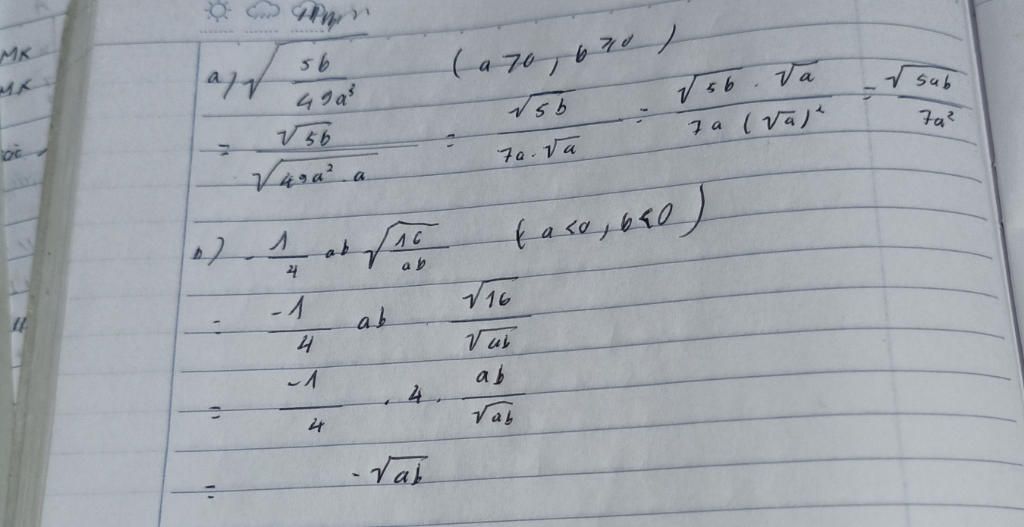 a) √(5b/49a³) (a > 0, b ≥ 0)
= √5b / √(49a² . a) = √5b / (7a . √a) = (√5b . √a) / (7a (√a)²) = √5ab / 7a²
b) -1/4 ab √(16/ab) (a < 0, b < 0)
= -1/4 ab . √16 / √ab
= -1/4 . 4 . ab / √ab
= -√ab